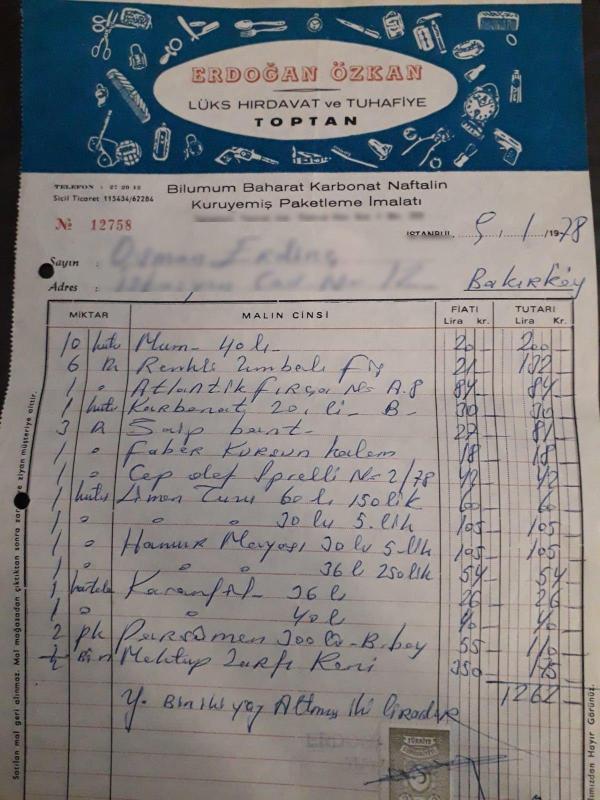 ERDOĞAN ÖZKAN
LÜKS HIRDAVAT ve TUHAFİYE
TOPTAN
TELEFON : 27 20 12
Sicil Ticaret 115434/62284
Bilumum Baharat Karbonat Naftalin
Kuruyemiş Paketleme İmalatı
№ 12758
İSTANBUL, 5 / 1 /1978
Sayın :
Adres : Bakırköy
MİKTAR MALIN CİNSİ FİATI Lira kr. TUTARI Lira Kr.
10 kutu Mum - 40 lı 20 200
6 Renkli Zımbalı 21 132
1 " Atlantik fırça No A.8 84 84
1 kutu Karbonat 20 li - B - 30 30
3 bant - 27 81
1 " Faber Kurşun kalem 18 18
1 " Cep def No 2/78 42 42
1 kutu Limon Tuzu 60 lı 150 lik 60 60
1 " " " 30 lu 5. lik 105 105
1 " Hamur Mayası 30 lu 5. lik 105 105
1 " " " 36 lı 250 lik 54 54
1 Karanfil - 36 lı 26 26
1 " " 40 lı 40 40
2 pk 200 lü - B. boy 55 110
½ Bin Mektup Zarfı 350 175
1262
Y. Biniki yüz Altmış iki liradır
TÜRKİYE
Satılan mal geri alınmaz. Mal mağazadan çıktıktan sonra zarar ve ziyan müşteriye aittir.
ımızdan Hayır Görünüz.